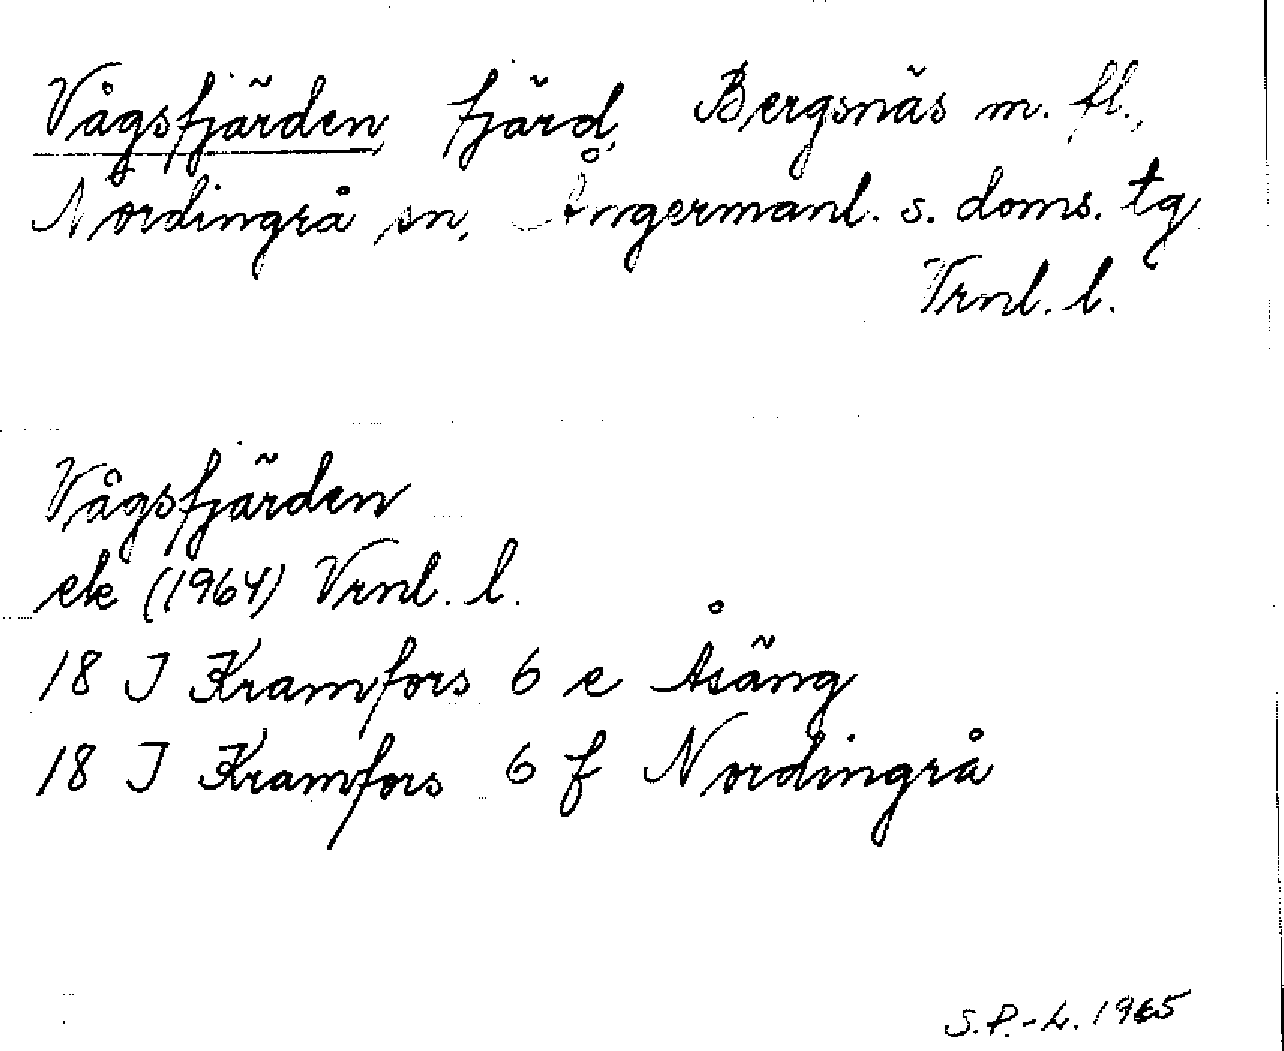 Vågsfjärden fjärd, Bergsnäs m. fl.,
Nordingrå sn, Ångermanl. s. doms. tg
Vrnl. l.
Vågsfjärden
ek (1964) Vrnl. l.
18 J Kramfors 6 e Åsäng
18 J Kramfors 6 f Nordingrå
S.P.-L. 1965